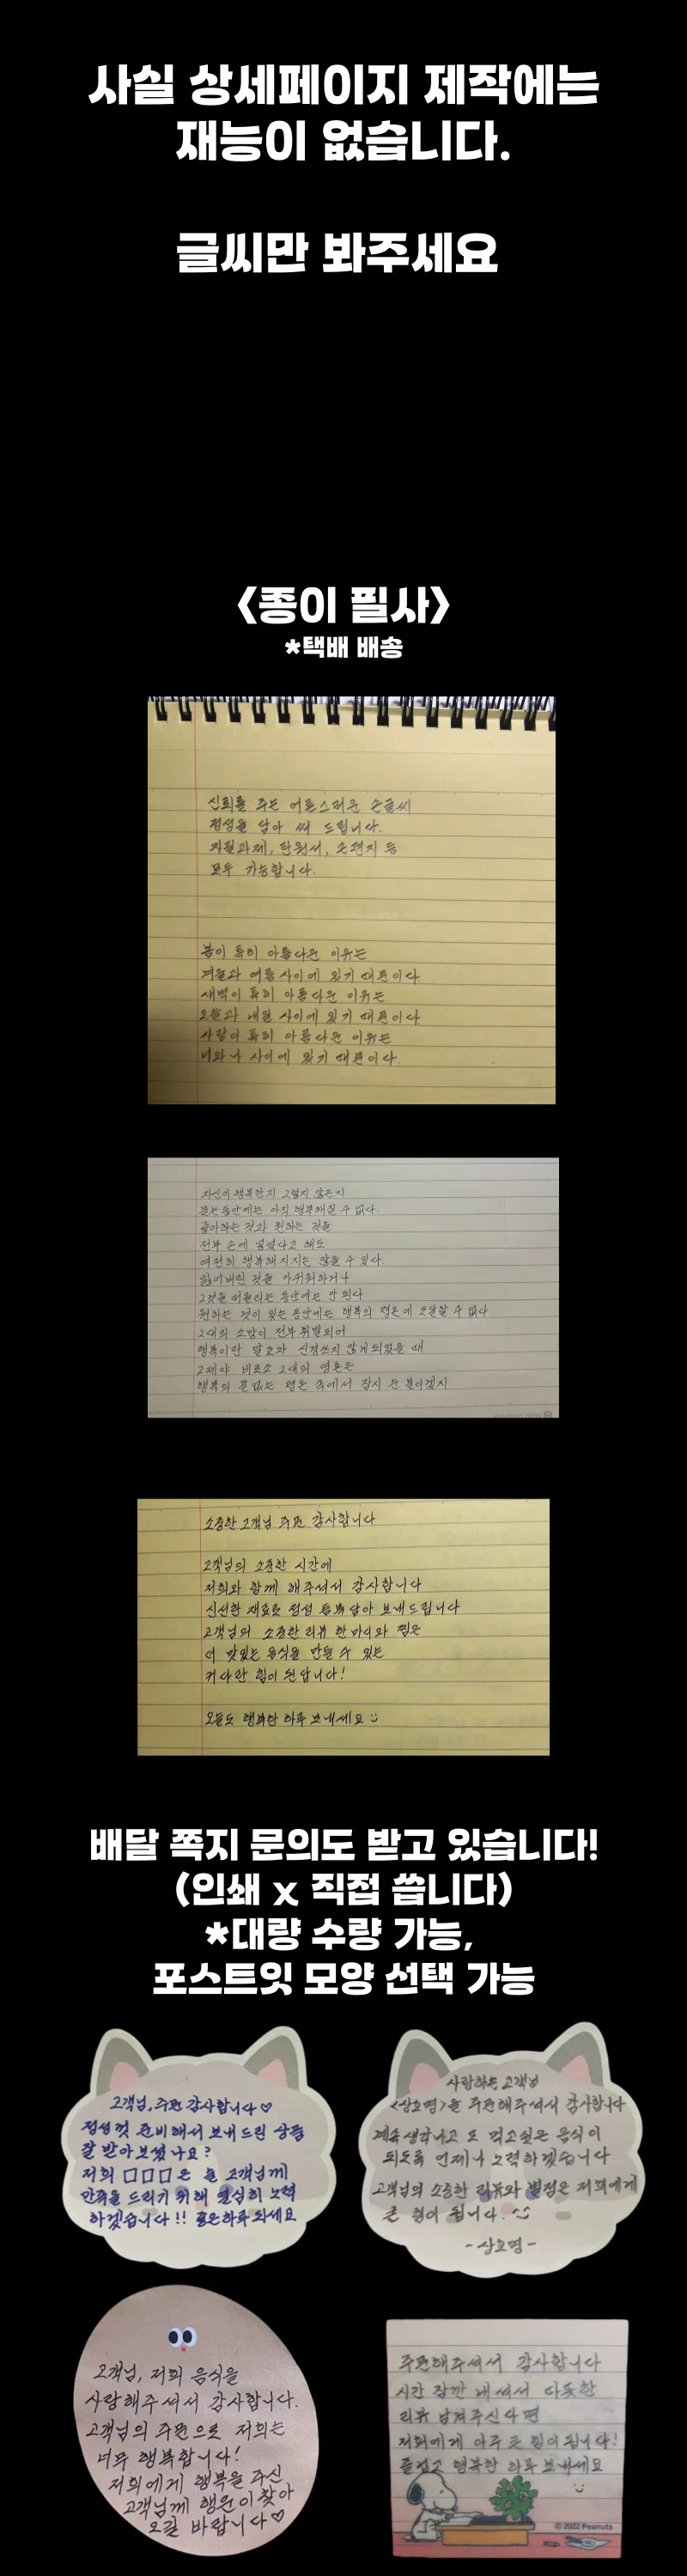 사실 상세페이지 제작에는
재능이 없습니다.
글씨만 봐주세요
<종이 필사>
*택배 배송
신뢰를 주는 어른스러운 손글씨
정성을 담아 써 드립니다.
자필과제, 탄원서, 손편지 등
모두 가능합니다.
봄이 특히 아름다운 이유는
겨울과 여름 사이에 있기 때문이다.
새벽이 특히 아름다운 이유는
오늘과 내일 사이에 있기 때문이다
사랑이 특히 아름다운 이유는
너와 나 사이에 있기 때문이다.
자신이 행복한지 그렇지 않은지
묻는 동안에는 아직 행복해질 수 없다.
좋아하는 것과 원하는 것을
전부 손에 넣었다고 해도
여전히 행복해지지는 않을 수 있다.
잃어버린 것을 아쉬워하거나
그것을 떠올리는 동안에는 안 된다
원하는 것이 있는 동안에는 행복의 평온에 도달할 수 없다
그대의 소망이 전부 휘발되어
행복이란 말조차 신경쓰지 않게 되었을 때
그제야 비로소 그대의 영혼은
행복의 끝없는 평온 속에서 잠시 눈 붙이겠지
소중한 고객님 주문 감사합니다
고객님의 소중한 시간에
저희와 함께 해주셔서 감사합니다
신선한 재료로 정성 듬뿍 담아 보내드립니다
고객님의 소중한 리뷰 한 마디와 찜은
더 맛있는 음식을 만들 수 있는
커다란 힘이 된답니다!
오늘도 행복한 하루 보내세요
배달 쪽지 문의도 받고 있습니다!
(인쇄 x 직접 씁니다)
*대량 수량 가능,
포스트잇 모양 선택 가능
고객님, 주문 감사합니다♡
정성껏 준비해서 보내드린 상품
잘 받아보셨나요?
저희 □□□은 늘 고객님께
만족을 드리기 위해 열심히 노력
하겠습니다!! 좋은하루 되세요
사랑하는 고객님
<상호명>을 주문해주셔서 감사합니다
계속 생각나고 또 먹고싶은 음식이
되도록 언제나 노력하겠습니다
고객님의 소중한 리뷰와 별점은 저희에게
큰 힘이 됩니다. ^^
-상호명-
고객님, 저희 음식을
사랑해주셔서 감사합니다.
고객님의 주문으로 저희는
너무 행복합니다!
저희에게 행복을 주신
고객님께 행운이 찾아
오길 바랍니다♡
주문해주셔서 감사합니다
시간 잠깐 내셔서 따뜻한
리뷰 남겨주신다면
저희에게 아주 큰 힘이 됩니다!
즐겁고 행복한 하루 보내세요
©2022 Peanuts